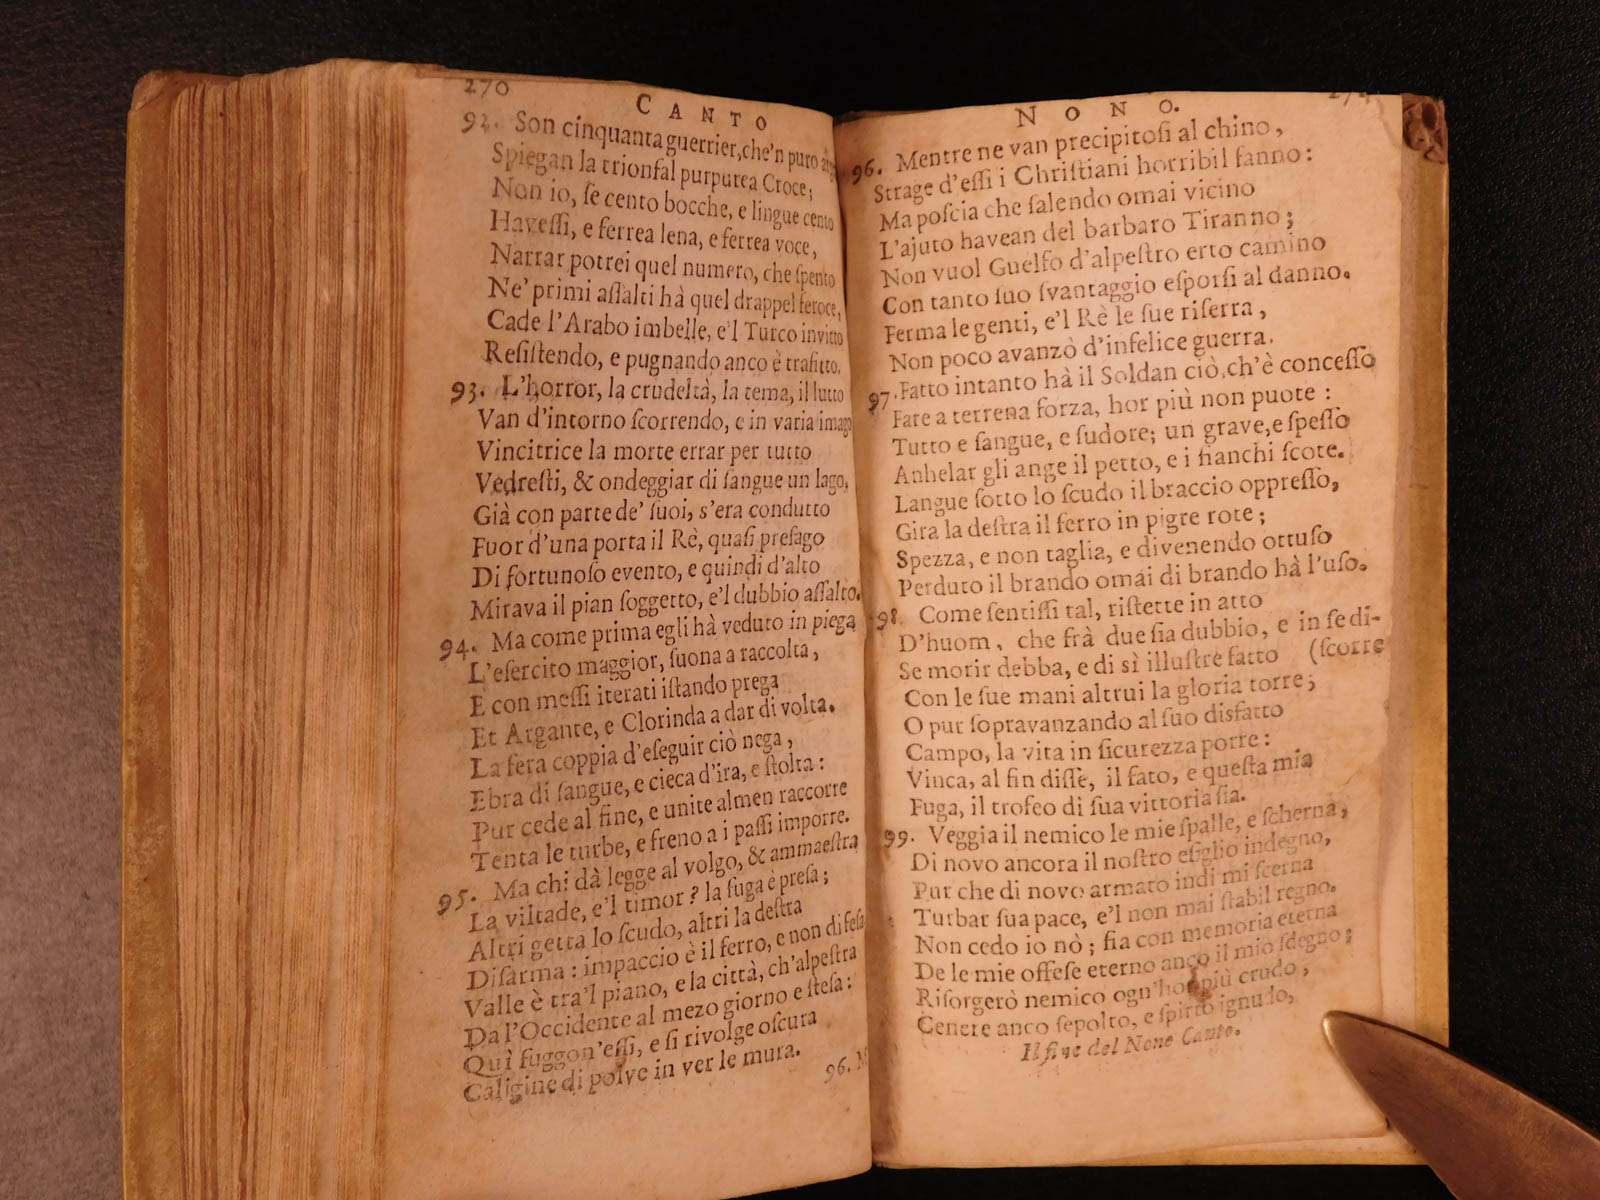 270
CANTO
92. Son cinquanta guerrier, che'n puro
Spiegan la trionfal purpurea Croce;
Non io, ſe cento bocche, e lingue cento
Haveſſi, e ferrea lena, e ferrea voce,
Narrar potrei quel numero, che ſpento
Ne' primi aſſalti hà quel drappel feroce,
Cade l'Arabo imbelle, e'l Turco invitto
Reſiſtendo, e pugnando anco è trafitto.
93. L'horror, la crudeltà, la tema, il lutto
Van d'intorno ſcorrendo, e in varia imago
Vincitrice la morte errar per tutto
Vedreſti, & ondeggiar di ſangue un lago,
Già con parte de' ſuoi, s'era condutto
Fuor d'una porta il Rè, quaſi preſago
Di fortunoſo evento, e quindi d'alto
Mirava il pian ſoggetto, e'l dubbio aſſalto.
94. Ma come prima egli hà veduto in piega
L'eſercito maggior, ſuona a raccolta,
E con meſſi iterati iſtando prega
Et Argante, e Clorinda a dar di volta.
La fera coppia d'eſeguir ciò nega,
Ebra di ſangue, e cieca d'ira, e ſtolta:
Pur cede al fine, e unite almen raccorre
Tenta le turbe, e freno a i paſſi imporre.
95. Ma chi dà legge al volgo, & ammaeſtra
La viltade, e'l timor? la fuga è preſa;
Altri getta lo ſcudo, altri la deſtra
Diſarma: impaccio è il ferro, e non difeſa
Valle è tra'l piano, e la città, ch'alpeſtra
Da l'Occidente al mezo giorno e ſteſa:
Quì fuggon'eſſi, e ſi rivolge oſcura
Caligine di polve in ver le mura.
96. M
NONO.
96. Mentre ne van precipitoſi al chino,
Strage d'eſſi i Chriſtiani horribil fanno:
Ma poſcia che ſalendo omai vicino
L'ajuto havean del barbaro Tiranno;
Non vuol Guelfo d'alpeſtro erto camino
Con tanto ſuo ſvantaggio eſporſi al danno.
Ferma le genti, e'l Rè le ſue riſerra,
Non poco avanzò d'infelice guerra.
97. Fatto intanto hà il Soldan ciò, ch'è conceſſo
Fare a terrena forza, hor più non puote:
Tutto e ſangue, e ſudore; un grave, e ſpeſſo
Anhelar gli ange il petto, e i fianchi ſcote.
Langue ſotto lo ſcudo il braccio oppreſſo,
Gira la deſtra il ferro in pigre rote;
Spezza, e non taglia, e divenendo ottuſo
Perduto il brando omai di brando hà l'uſo.
98. Come ſentiſſi tal, riſtette in atto
D'huom, che frà due ſia dubbio, e in ſe di-
Se morir debba, e di sì illuſtre fatto (ſcorre
Con le ſue mani altrui la gloria torre;
O pur ſopravanzando al ſuo disfatto
Campo, la vita in ſicurezza porre:
Vinca, al fin diſſe, il fato, e queſta mia
Fuga, il trofeo di ſua vittoria ſia.
99. Veggia il nemico le mie ſpalle, e ſcherna,
Di novo ancora il noſtro eſiglio indegno,
Pur che di novo armato indi mi ſcerna
Turbar ſua pace, e'l non mai ſtabil regno.
Non cedo io nò; fia con memoria eterna
De le mie offeſe eterno anco il mio ſdegno;
Riſorgerò nemico ogn'hor più crudo,
Cenere anco ſepolto, e ſpirto ignudo,
Il fine del Nono Canto.